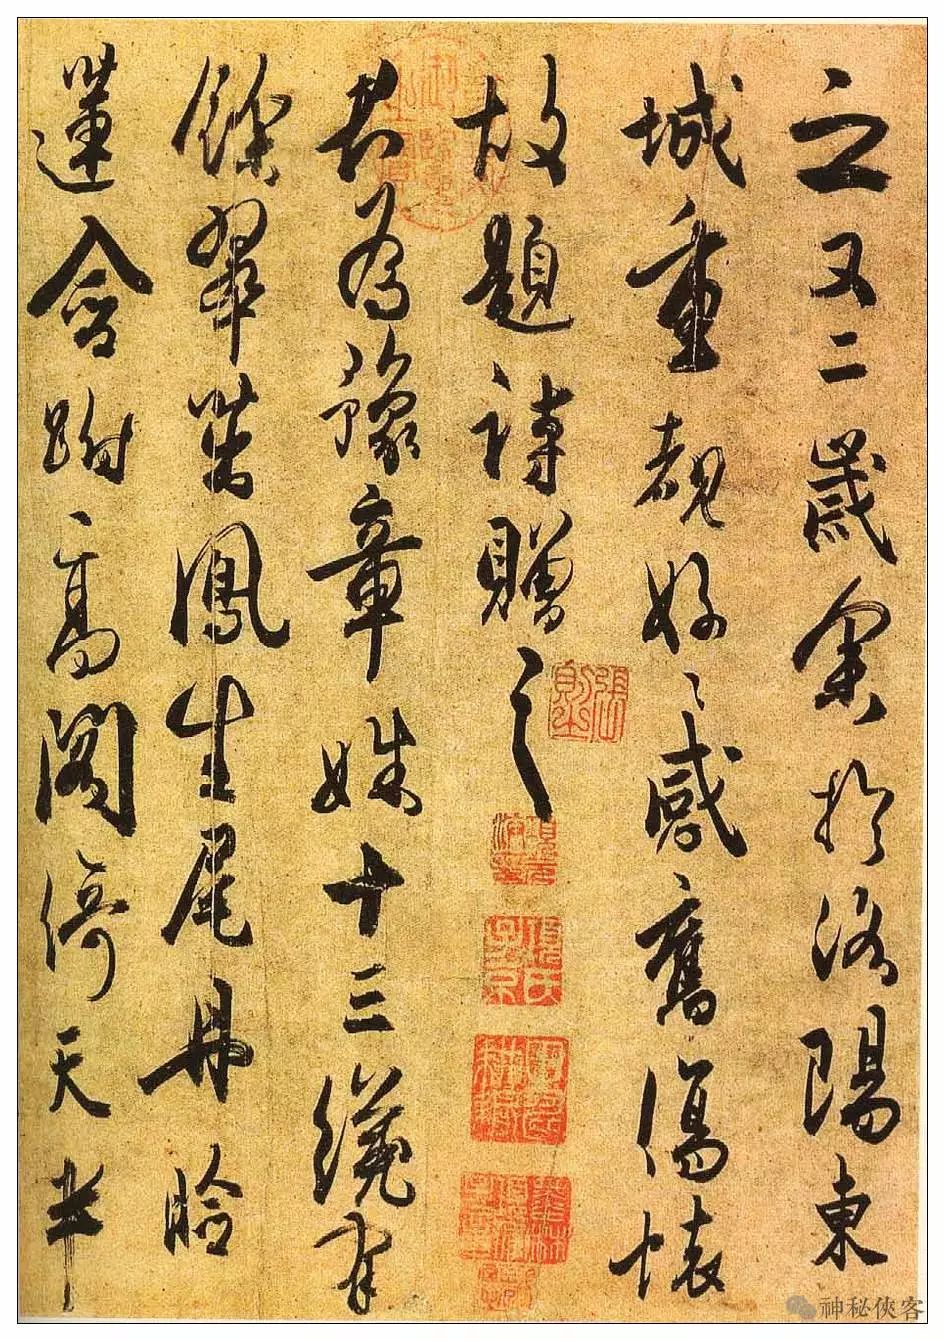 之又二歲余於洛陽東
城重覩好〻感舊傷懷
故題詩贈之
君為豫章姝十三纔有
餘翠茁鳳生尾丹臉
蓮含跗高閣倚天半
張則之
神秘俠客